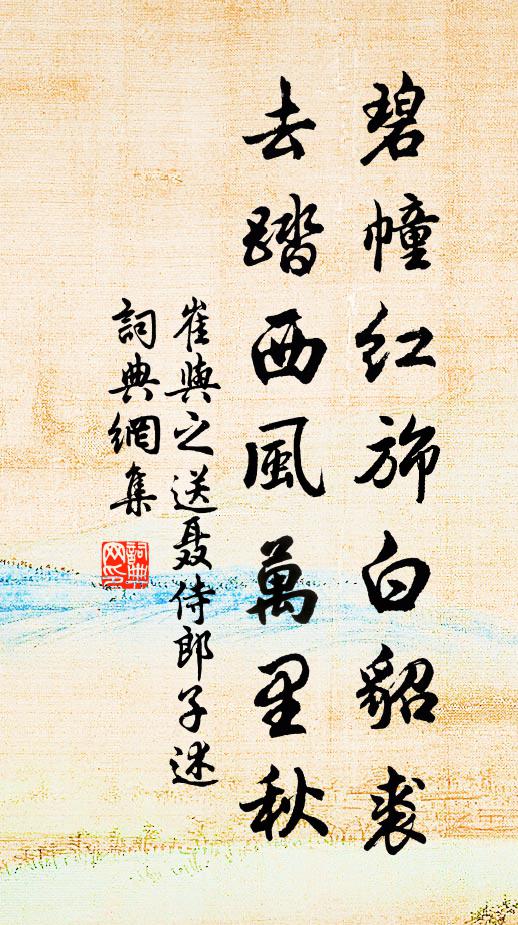 碧幢紅旆白貂裘
去踏西風萬里秋
崔與之送聂侍郎子述
詞典網集
詞典網印